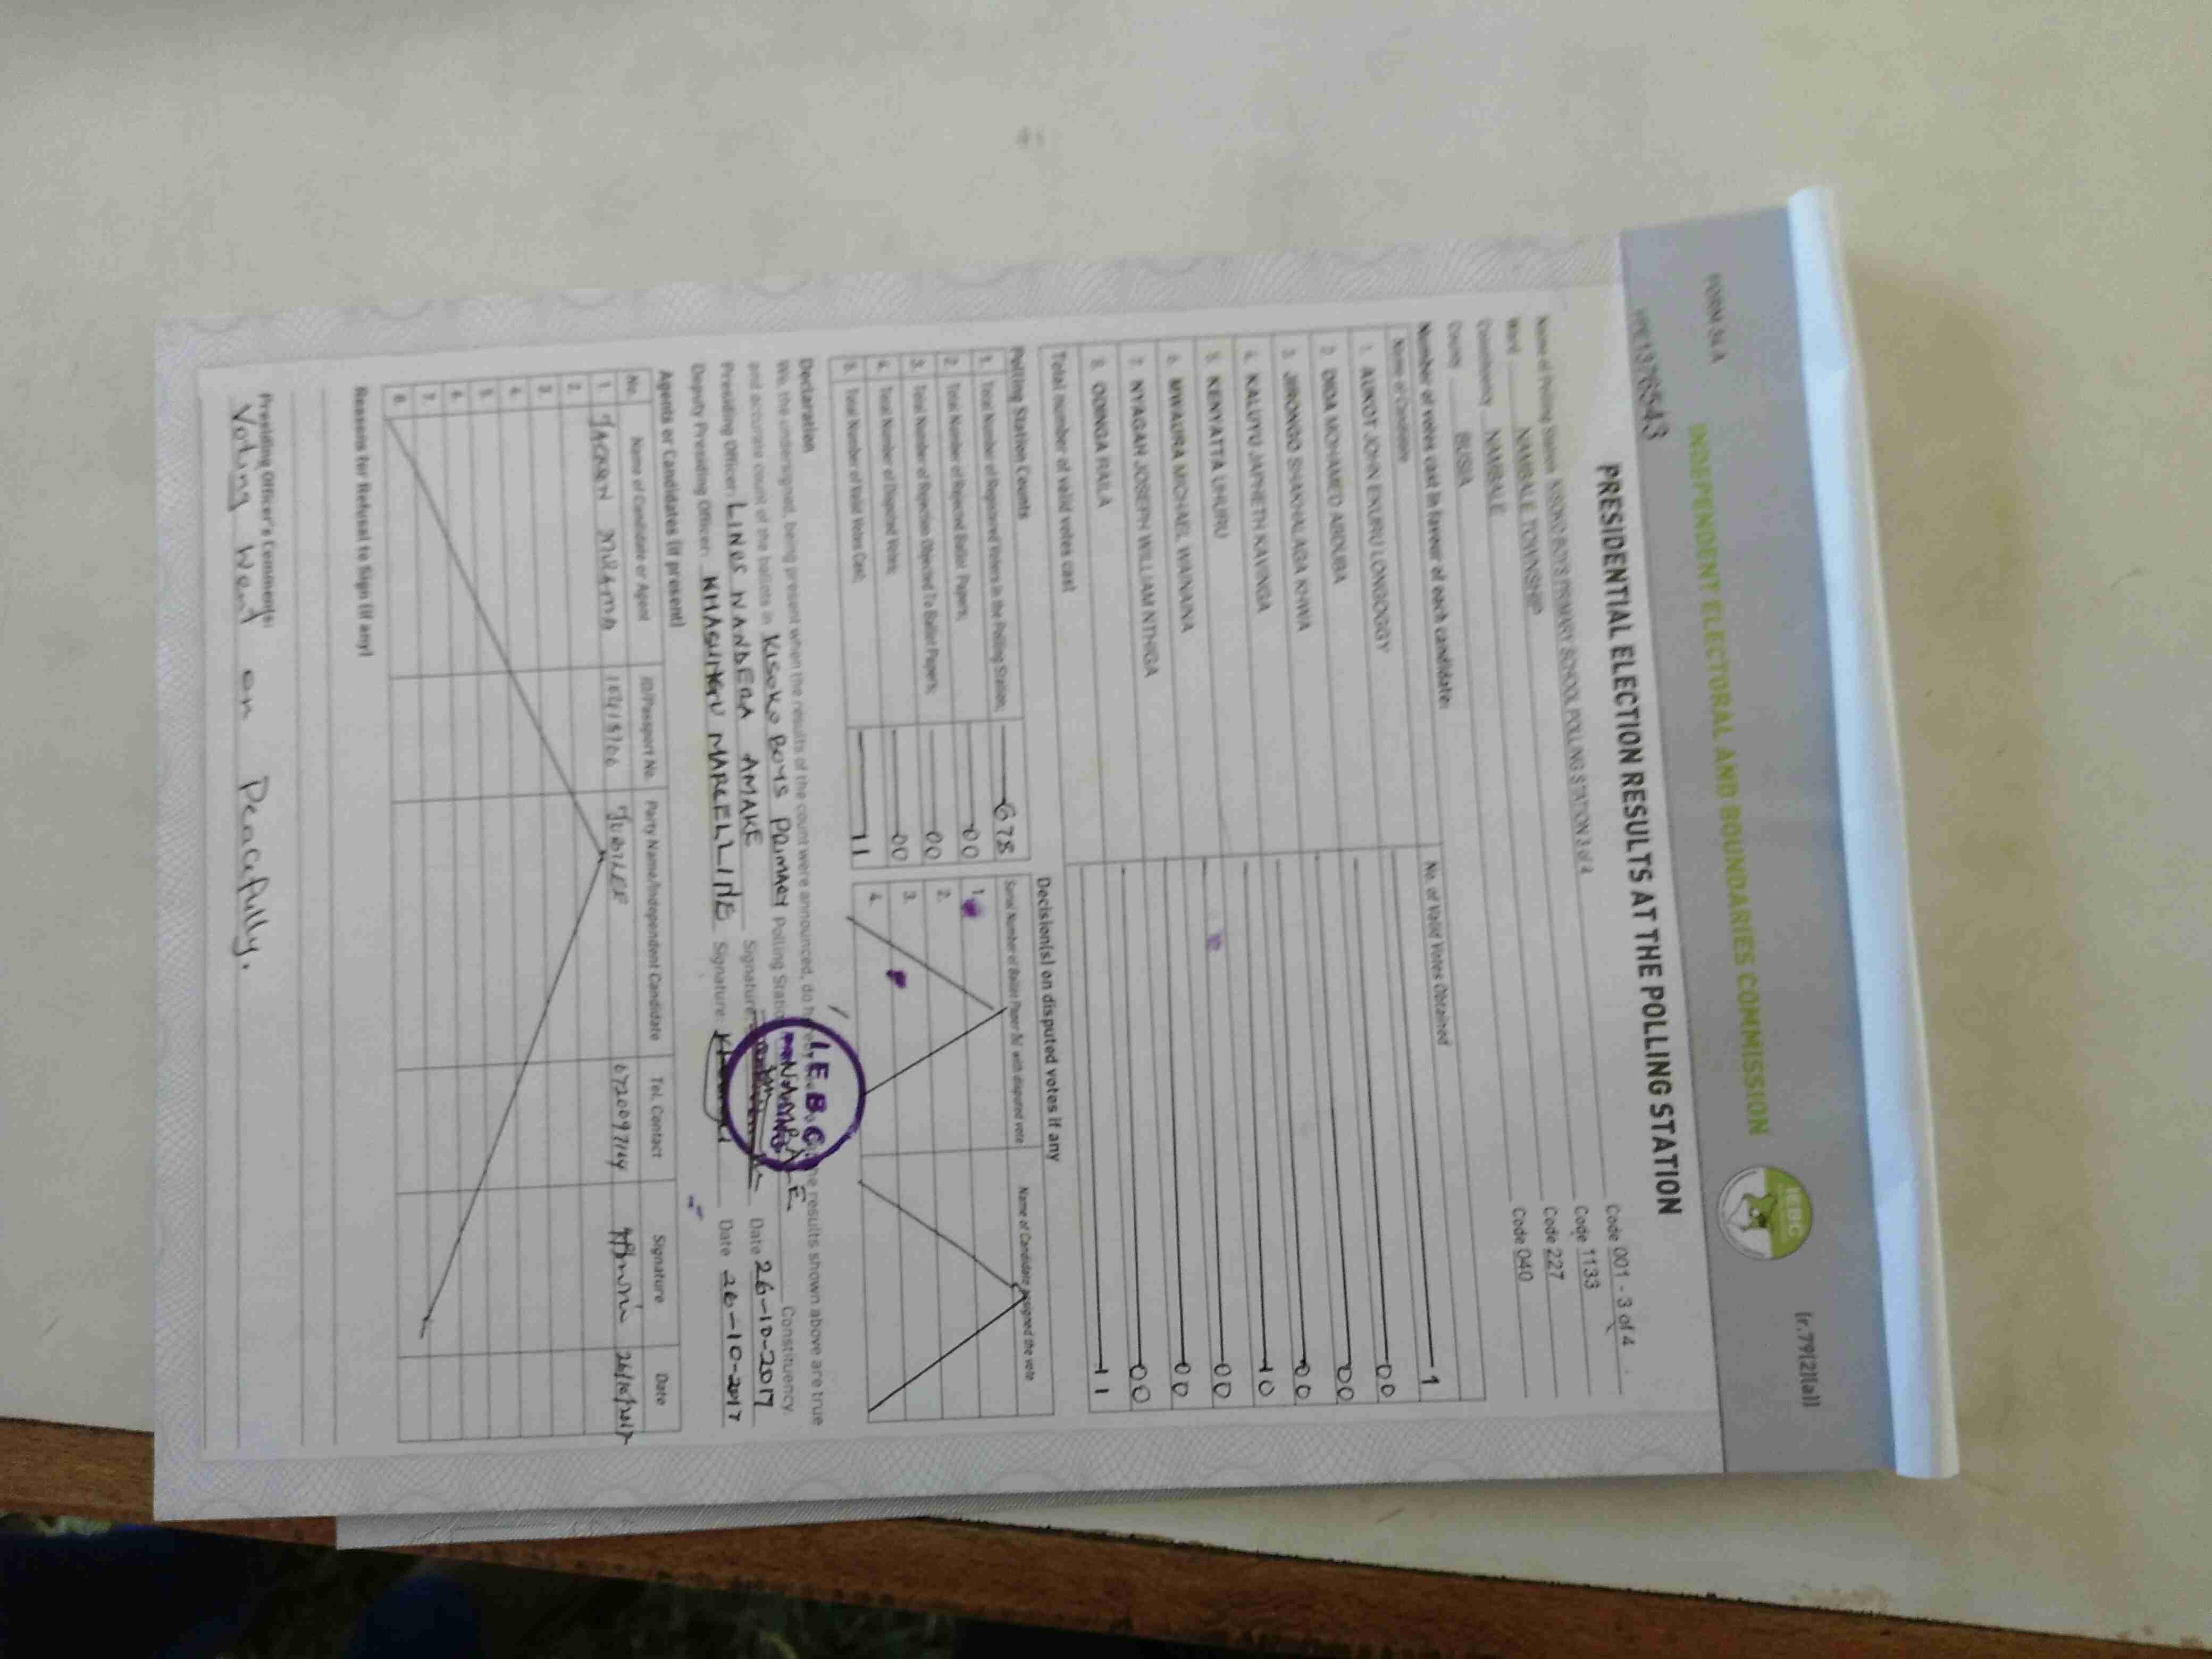 FORM 34 A (r.79(2)(a))
INDEPENDENT ELECTORAL AND BOUNDARIES COMMISSION
IEBC
PRESIDENTIAL ELECTION RESULTS AT THE POLLING STATION
Name of Polling Station KISOKO BOYS PRIMARY SCHOOL POLLING STATION 3 of 4 Code 001 - 3 of 4
Ward NAMBALE TOWNSHIP Code 1133
Constituency NAMBALE Code 227
County BUSIA Code 040
Number of votes cast in favour of each candidate:
Name of Candidate No. of Valid Votes Obtained
1. AUKOT JOHN EKURU LONGGOGGY 1
2. DIDA MOHAMED ABDUBA 00
3. JIRONGO SHAKHALAGA KHWA 00
4. KALUYU JAPHETH KAVINGA 00
5. KENYATTA UHURU 10
6. MWAURA MICHAEL WAINAINA 00
7. NYAGAH JOSEPH WILLIAM NTHIGA 00
8. ODINGA RAILA 00
Total number of valid votes cast 11
Polling Station Counts
1. Total Number of Registered Voters in the Polling Station; 678
2. Total Number of Rejected Ballot Papers; 00
3. Total Number of Rejection Objected To Ballot Papers; 00
4. Total Number of Disputed Votes; 00
5. Total Number of Valid Votes Cast; 11
Decision(s) on disputed votes if any
Serial Number of Ballot Paper (s) with disputed vote Name of Candidate assigned the vote
1.
2.
3.
4.
Declaration
We, the undersigned, being present when the results of the count were announced, do the results shown above are true
and accurate count of the ballots in KISOKO BOYS PRIMARY Polling Station NAMBALE Constituency.
Presiding Officer: LINOS NANDERA AMAKE Signature: Date 26-10-2017
Deputy Presiding Officer: KHASUNGU MARCELLINE Signature: Date 26-10-2017
I.E.B.C
Agents or Candidates (if present)
No. Name of Candidate or Agent ID/Passport No. Party Name/Independent Candidate Tel. Contact Signature Date
1. JUBILEE 0720097164 26/10/2017
2.
3.
4.
5.
6.
7.
8.
Reasons for Refusal to Sign (if any)
Presiding Officer's Comments:
Voting Went on Peacefully.